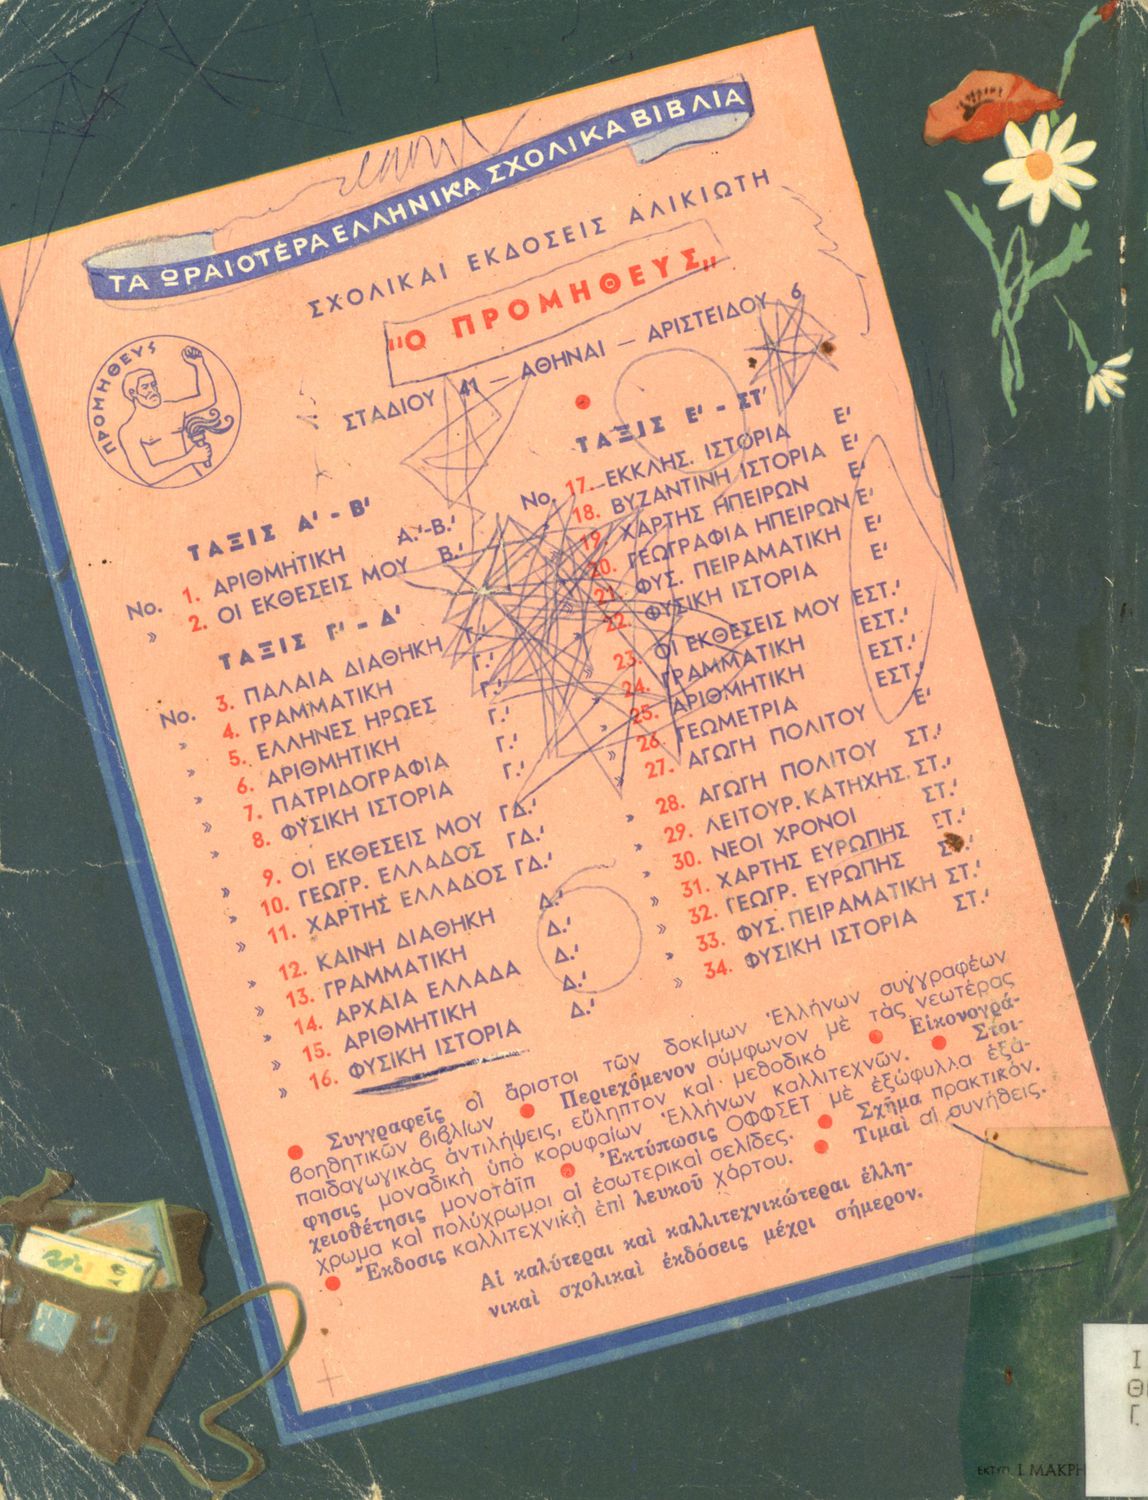 ΤΑ ΩΡΑΙΟΤΕΡΑ ΕΛΛΗΝΙΚΑ ΣΧΟΛΙΚΑ ΒΙΒΛΙΑ
ΣΧΟΛΙΚΑΙ ΕΚΔΟΣΕΙΣ ΑΛΙΚΙΩΤΗ
"Ο ΠΡΟΜΗΘΕΥΣ"
ΣΤΑΔΙΟΥ 41 — ΑΘΗΝΑΙ — ΑΡΙΣΤΕΙΔΟΥ 6
ΠΡΟΜΗΘΕΥΣ
ΤΑΞΙΣ Α' - Β'
Νο. 1. ΑΡΙΘΜΗΤΙΚΗ Α.'-Β.'
» 2. ΟΙ ΕΚΘΕΣΕΙΣ ΜΟΥ Β.'
ΤΑΞΙΣ Γ' - Δ'
Νο. 3. ΠΑΛΑΙΑ ΔΙΑΘΗΚΗ Γ.'
» 4. ΓΡΑΜΜΑΤΙΚΗ Γ.'
» 5. ΕΛΛΗΝΕΣ ΗΡΩΕΣ Γ.'
» 6. ΑΡΙΘΜΗΤΙΚΗ Γ.'
» 7. ΠΑΤΡΙΔΟΓΡΑΦΙΑ Γ.'
» 8. ΦΥΣΙΚΗ ΙΣΤΟΡΙΑ Γ.'
» 9. ΟΙ ΕΚΘΕΣΕΙΣ ΜΟΥ ΓΔ.'
» 10. ΓΕΩΓΡ. ΕΛΛΑΔΟΣ ΓΔ.'
» 11. ΧΑΡΤΗΣ ΕΛΛΑΔΟΣ ΓΔ.'
» 12. ΚΑΙΝΗ ΔΙΑΘΗΚΗ Δ.'
» 13. ΓΡΑΜΜΑΤΙΚΗ Δ.'
» 14. ΑΡΧΑΙΑ ΕΛΛΑΔΑ Δ.'
» 15. ΑΡΙΘΜΗΤΙΚΗ Δ.'
» 16. ΦΥΣΙΚΗ ΙΣΤΟΡΙΑ Δ.'
ΤΑΞΙΣ Ε' - ΣΤ'
Νο. 17. ΕΚΚΛΗΣ. ΙΣΤΟΡΙΑ Ε'
18. ΒΥΖΑΝΤΙΝΗ ΙΣΤΟΡΙΑ Ε'
19. ΧΑΡΤΗΣ ΗΠΕΙΡΩΝ Ε'
20. ΓΕΩΓΡΑΦΙΑ ΗΠΕΙΡΩΝ Ε'
21. ΦΥΣ. ΠΕΙΡΑΜΑΤΙΚΗ Ε'
22. ΦΥΣΙΚΗ ΙΣΤΟΡΙΑ Ε'
23. ΟΙ ΕΚΘΕΣΕΙΣ ΜΟΥ ΕΣΤ.'
24. ΓΡΑΜΜΑΤΙΚΗ ΕΣΤ.'
» 25. ΑΡΙΘΜΗΤΙΚΗ ΕΣΤ.'
» 26. ΓΕΩΜΕΤΡΙΑ ΕΣΤ.'
» 27. ΑΓΩΓΗ ΠΟΛΙΤΟΥ Ε'
» 28. ΑΓΩΓΗ ΠΟΛΙΤΟΥ ΣΤ.'
» 29. ΛΕΙΤΟΥΡ. ΚΑΤΗΧΗΣ. ΣΤ.'
» 30. ΝΕΟΙ ΧΡΟΝΟΙ ΣΤ.'
» 31. ΧΑΡΤΗΣ ΕΥΡΩΠΗΣ ΣΤ.'
» 32. ΓΕΩΓΡ. ΕΥΡΩΠΗΣ ΣΤ.'
» 33. ΦΥΣ. ΠΕΙΡΑΜΑΤΙΚΗ ΣΤ.'
» 34. ΦΥΣΙΚΗ ΙΣΤΟΡΙΑ ΣΤ.'
● Συγγραφεῖς οἱ ἄριστοι τῶν δοκίμων Ἑλλήνων συγγραφέων
βοηθητικῶν βιβλίων ● Περιεχόμενον σύμφωνον μὲ τὰς νεωτέρας
παιδαγωγικὰς ἀντιλήψεις, εὔληπτον καὶ μεθοδικό ● Εἰκονογρά-
φησις μοναδικὴ ὑπὸ κορυφαίων Ἑλλήνων καλλιτεχνῶν. ● Στοι-
χειοθέτησις μονοτάϊπ ● Ἐκτύπωσις ΟΦΦΣΕΤ μὲ ἐξώφυλλα ἑξά-
χρωμα καὶ πολύχρωμοι αἱ ἐσωτερικαὶ σελίδες. ● Σχῆμα πρακτικόν.
● Ἔκδοσις καλλιτεχνικὴ ἐπὶ λευκοῦ χάρτου. ● Τιμαὶ αἱ συνήθεις.
Αἱ καλύτεραι καὶ καλλιτεχνικώτεραι ἑλλη-
νικαὶ σχολικαὶ ἐκδόσεις μέχρι σήμερον.
Ι
Θ
Γ
ΕΚΤΥΠ. Ι. ΜΑΚΡΗ